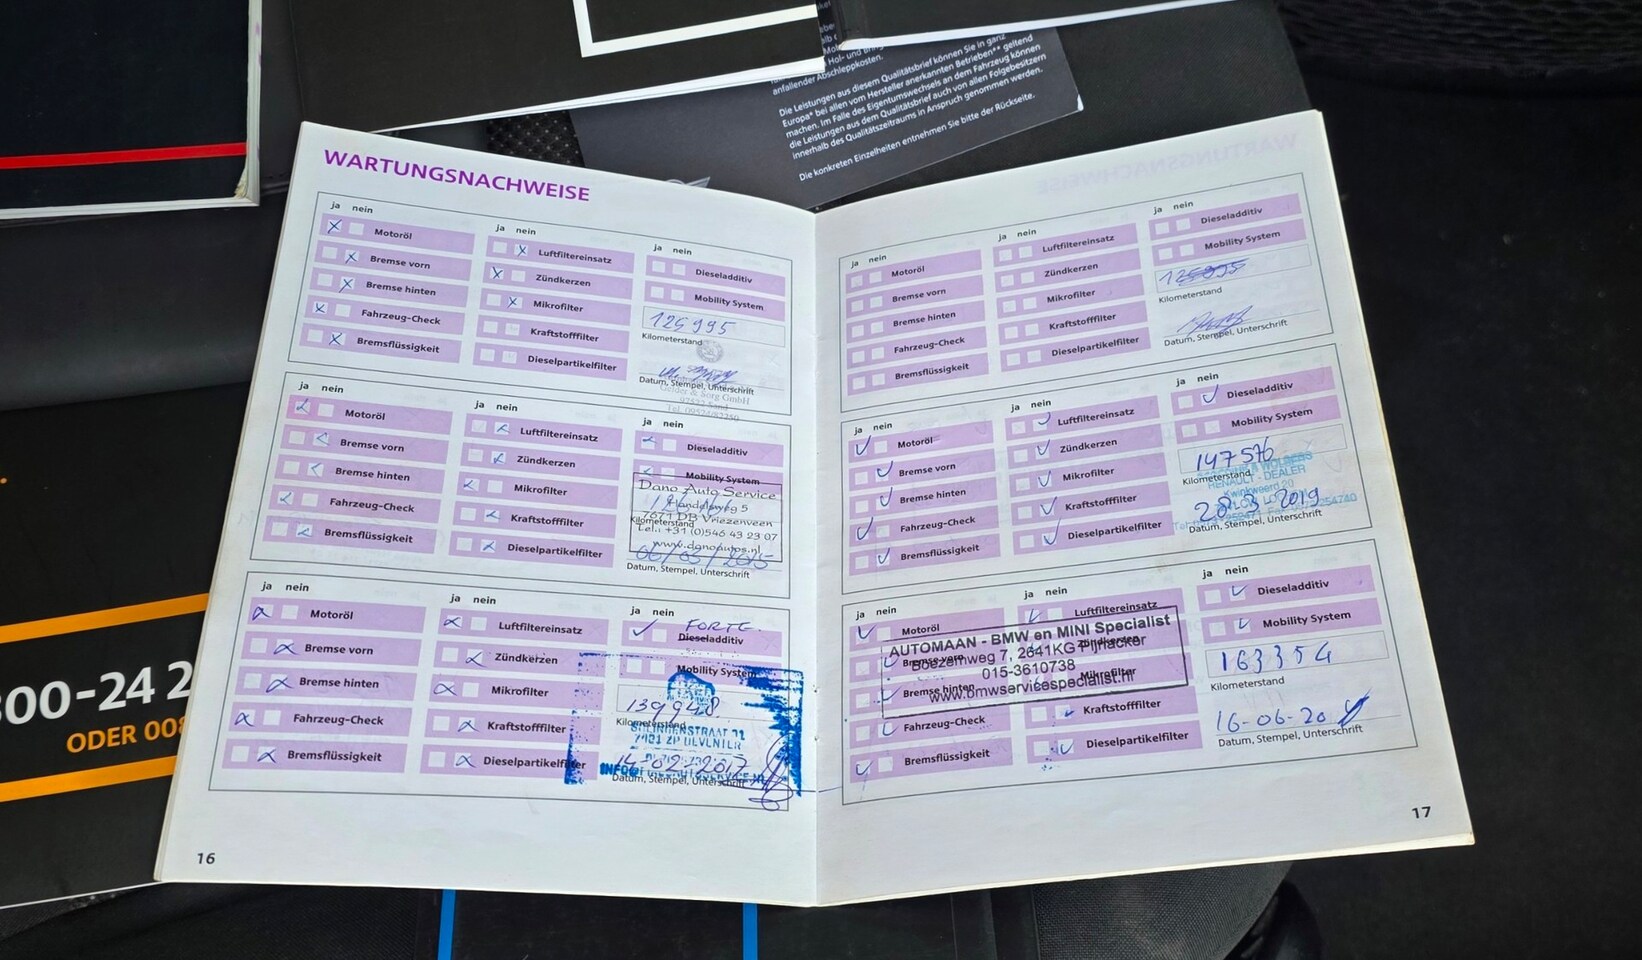 anfallender Abschleppkosten.
Die Leistungen aus diesem Qualitätsbrief können Sie in ganz
Europa* bei allen vom Hersteller anerkannten Betrieben** geltend
machen. Im Falle des Eigentumswechsels an dem Fahrzeug können
die Leistungen aus dem Qualitätsbrief auch von allen Folgebesitzern
innerhalb des Qualitätszeitraums in Anspruch genommen werden.
Die konkreten Einzelheiten entnehmen Sie bitte der Rückseite.
WARTUNGSNACHWEISE
ja nein
Motoröl
Bremse vorn
Bremse hinten
Fahrzeug-Check
Bremsflüssigkeit
ja nein
Luftfiltereinsatz
Zündkerzen
Mikrofilter
Kraftstofffilter
Dieselpartikelfilter
ja nein
Dieseladditiv
Mobility System
125995
Kilometerstand
Datum, Stempel, Unterschrift
ja nein
Motoröl
Bremse vorn
Bremse hinten
Fahrzeug-Check
Bremsflüssigkeit
ja nein
Luftfiltereinsatz
Zündkerzen
Mikrofilter
Kraftstofffilter
Dieselpartikelfilter
ja nein
Dieseladditiv
Mobility System
Dano Auto Service
7671 DB Vriezenveen
Tel.: +31 (0)546 43 23 07
www.danoautos.nl
Kilometerstand
06/03/2015
Datum, Stempel, Unterschrift
ja nein
Motoröl
Bremse vorn
Bremse hinten
Fahrzeug-Check
Bremsflüssigkeit
ja nein
Luftfiltereinsatz
Zündkerzen
Mikrofilter
Kraftstofffilter
Dieselpartikelfilter
ja nein
FORTE
Dieseladditiv
Mobility System
139948
Kilometerstand
14-02-2017
Datum, Stempel, Unterschrift
16
ja nein
Motoröl
Bremse vorn
Bremse hinten
Fahrzeug-Check
Bremsflüssigkeit
ja nein
Luftfiltereinsatz
Zündkerzen
Mikrofilter
Kraftstofffilter
Dieselpartikelfilter
ja nein
Dieseladditiv
Mobility System
125995
Kilometerstand
Datum, Stempel, Unterschrift
ja nein
Motoröl
Bremse vorn
Bremse hinten
Fahrzeug-Check
Bremsflüssigkeit
ja nein
Luftfiltereinsatz
Zündkerzen
Mikrofilter
Kraftstofffilter
Dieselpartikelfilter
ja nein
Dieseladditiv
Mobility System
147576
Kilometerstand
RENAULT - DEALER
28 3 2019
Datum, Stempel, Unterschrift
ja nein
Motoröl
Bremse vorn
Bremse hinten
Fahrzeug-Check
Bremsflüssigkeit
ja nein
Luftfiltereinsatz
Zündkerzen
Mikrofilter
Kraftstofffilter
Dieselpartikelfilter
AUTOMAAN - BMW en MINI Specialist
Boezemweg 7, 2641KG Pijnacker
015-3610738
www.bmwservicespecialist.nl
ja nein
Dieseladditiv
Mobility System
163354
Kilometerstand
16-06-20
Datum, Stempel, Unterschrift
17
00-24 2
ODER 008